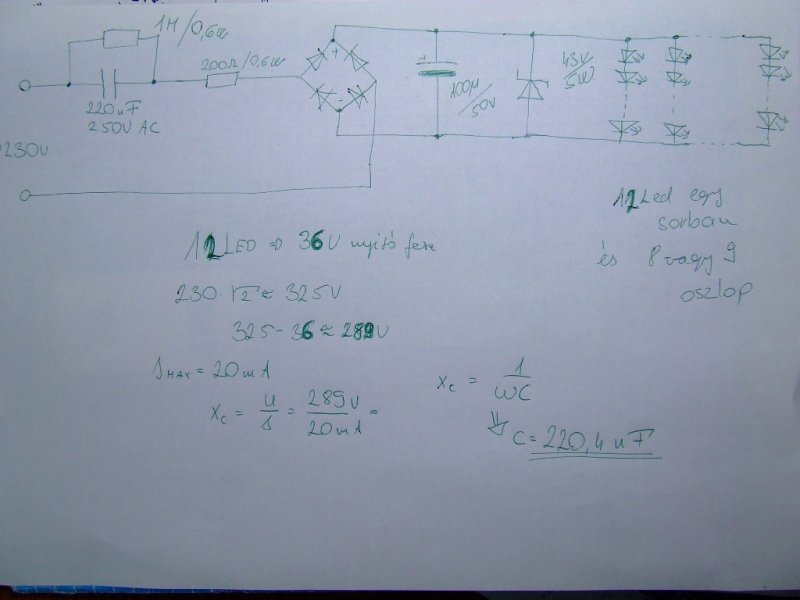 1M/0,6W
200Ω/0,6W
220nF
250V AC
230V
+
-
+
100µ/50V
43V/5W
12 Led egy
sorban
és 8 vagy 9
oszlop
12 LED ⇒ 36V nyitó fesz
230·√2 ≈ 325V
325-36 ≈ 289V
IMAX = 20mA
Xc = U/I = 289V/20mA =
Xc = 1/ωC
⇓ C = 220,4nF